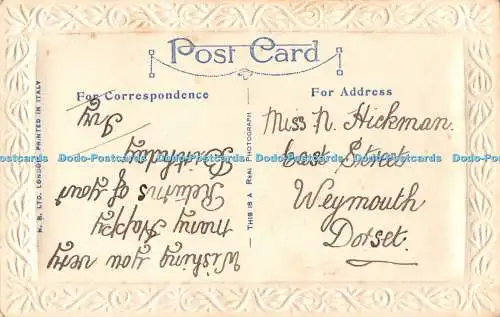 Post Card
For Correspondence
For Address
Wishing you very
many Happy
Returns of your
Birthday
Ivy
Miss N. Hickman.
East Street
Weymouth
Dorset.
N. B. LTD. LONDON. PRINTED IN ITALY
THIS IS A REAL PHOTOGRAPH
Dodo-Postcards Dodo-Postcards Dodo-Postcards Dodo-Postcards Dodo-Postcards Dodo-Postcards